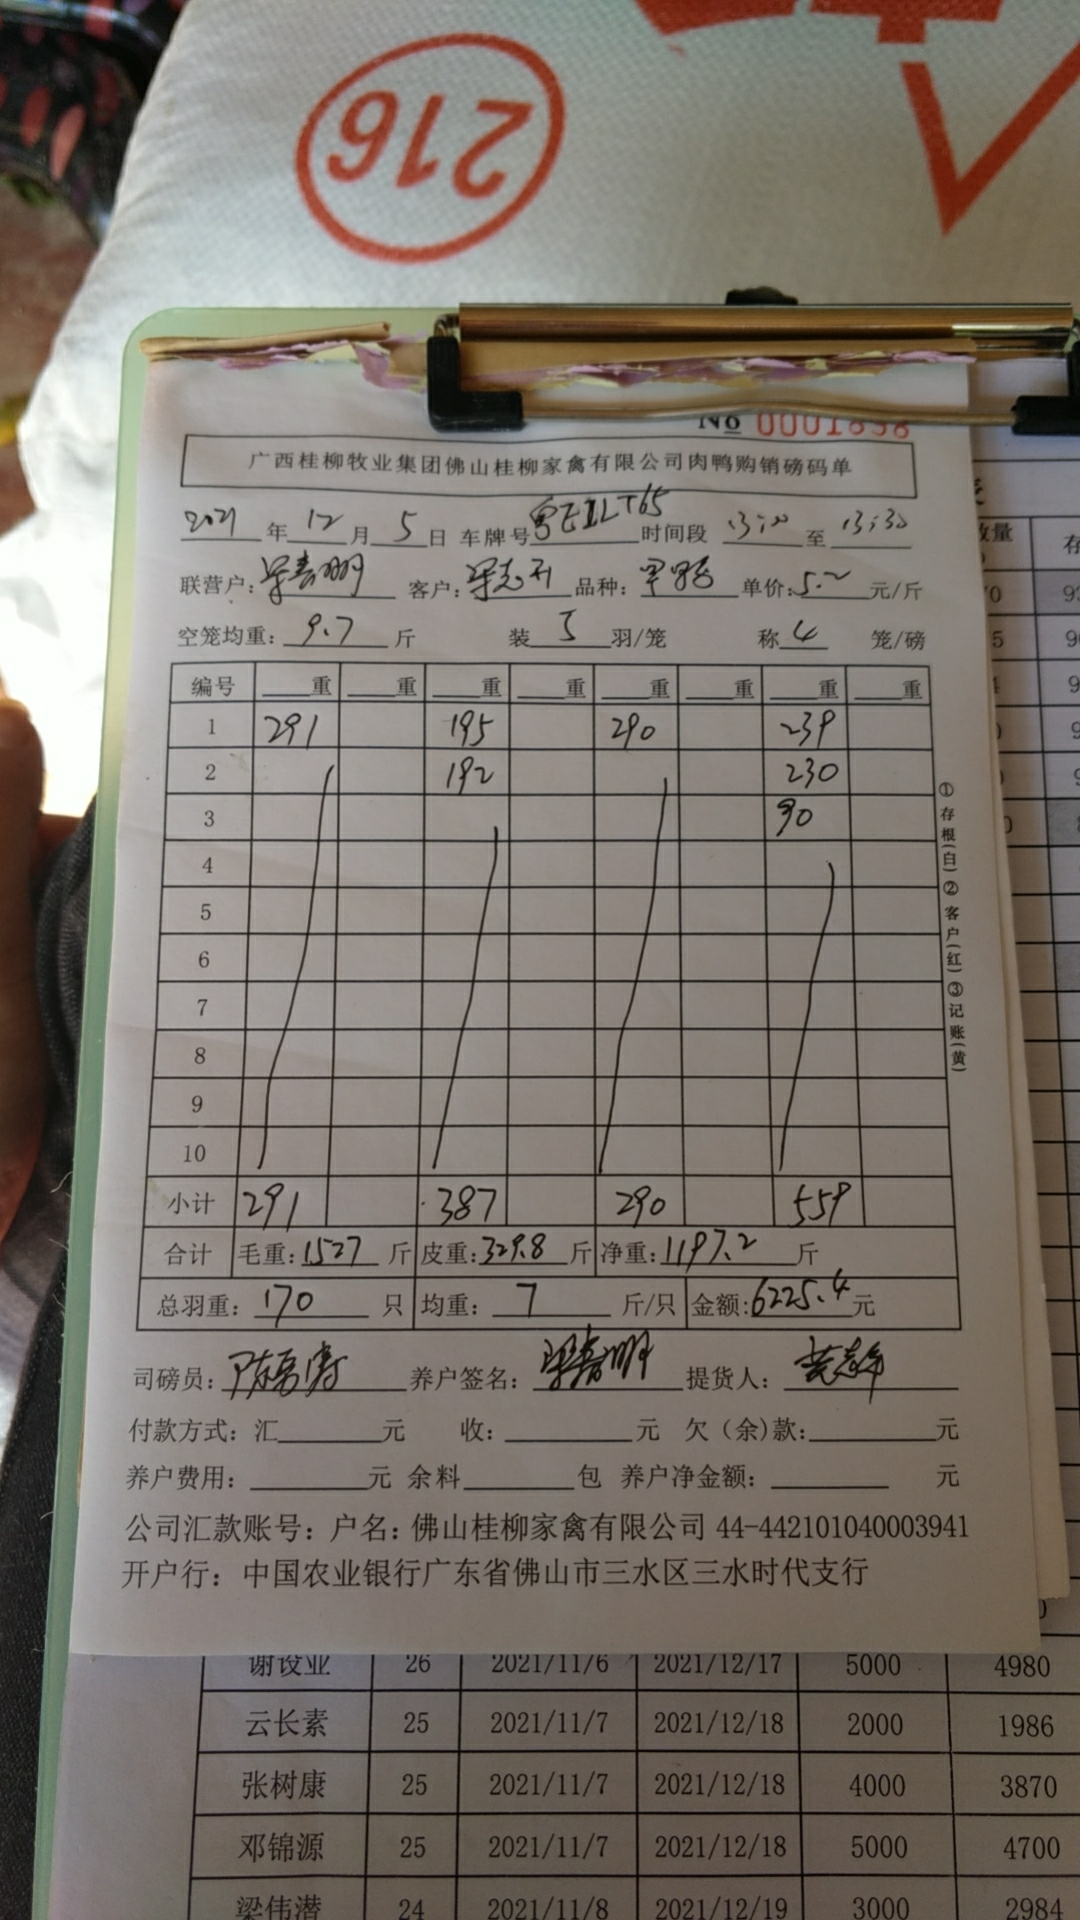 216
No 0001898
广西桂柳牧业集团佛山桂柳家禽有限公司肉鸭购销磅码单
2021年12月5日 车牌号 时间段 13:00 至 13:30
联营户: 客户: 品种: 单价:5.2元/斤
空笼均重:9.7斤 装5羽/笼 称4笼/磅
编号 重 重 重 重 重 重 重 重
1 291 195 290 239
2 192 230
3 90
4
5
6
7
8
9
10
小计 291 387 290 559
合计 毛重:1527斤 皮重:329.8斤 净重:1197.2斤
总羽重:170只 均重:7斤/只 金额:6225.4元
司磅员: 养户签名: 提货人:
付款方式:汇 元 收: 元 欠(余)款: 元
养户费用: 元 余料 包 养户净金额: 元
公司汇款账号:户名:佛山桂柳家禽有限公司 44-442101040003941
开户行:中国农业银行广东省佛山市三水区三水时代支行
①存根(白)②客户(红)③记账(黄)
谢设业 26 2021/11/6 2021/12/17 5000 4980
云长素 25 2021/11/7 2021/12/18 2000 1986
张树康 25 2021/11/7 2021/12/18 4000 3870
邓锦源 25 2021/11/7 2021/12/18 5000 4700
梁伟潜 24 2021/11/8 2021/12/19 3000 2984